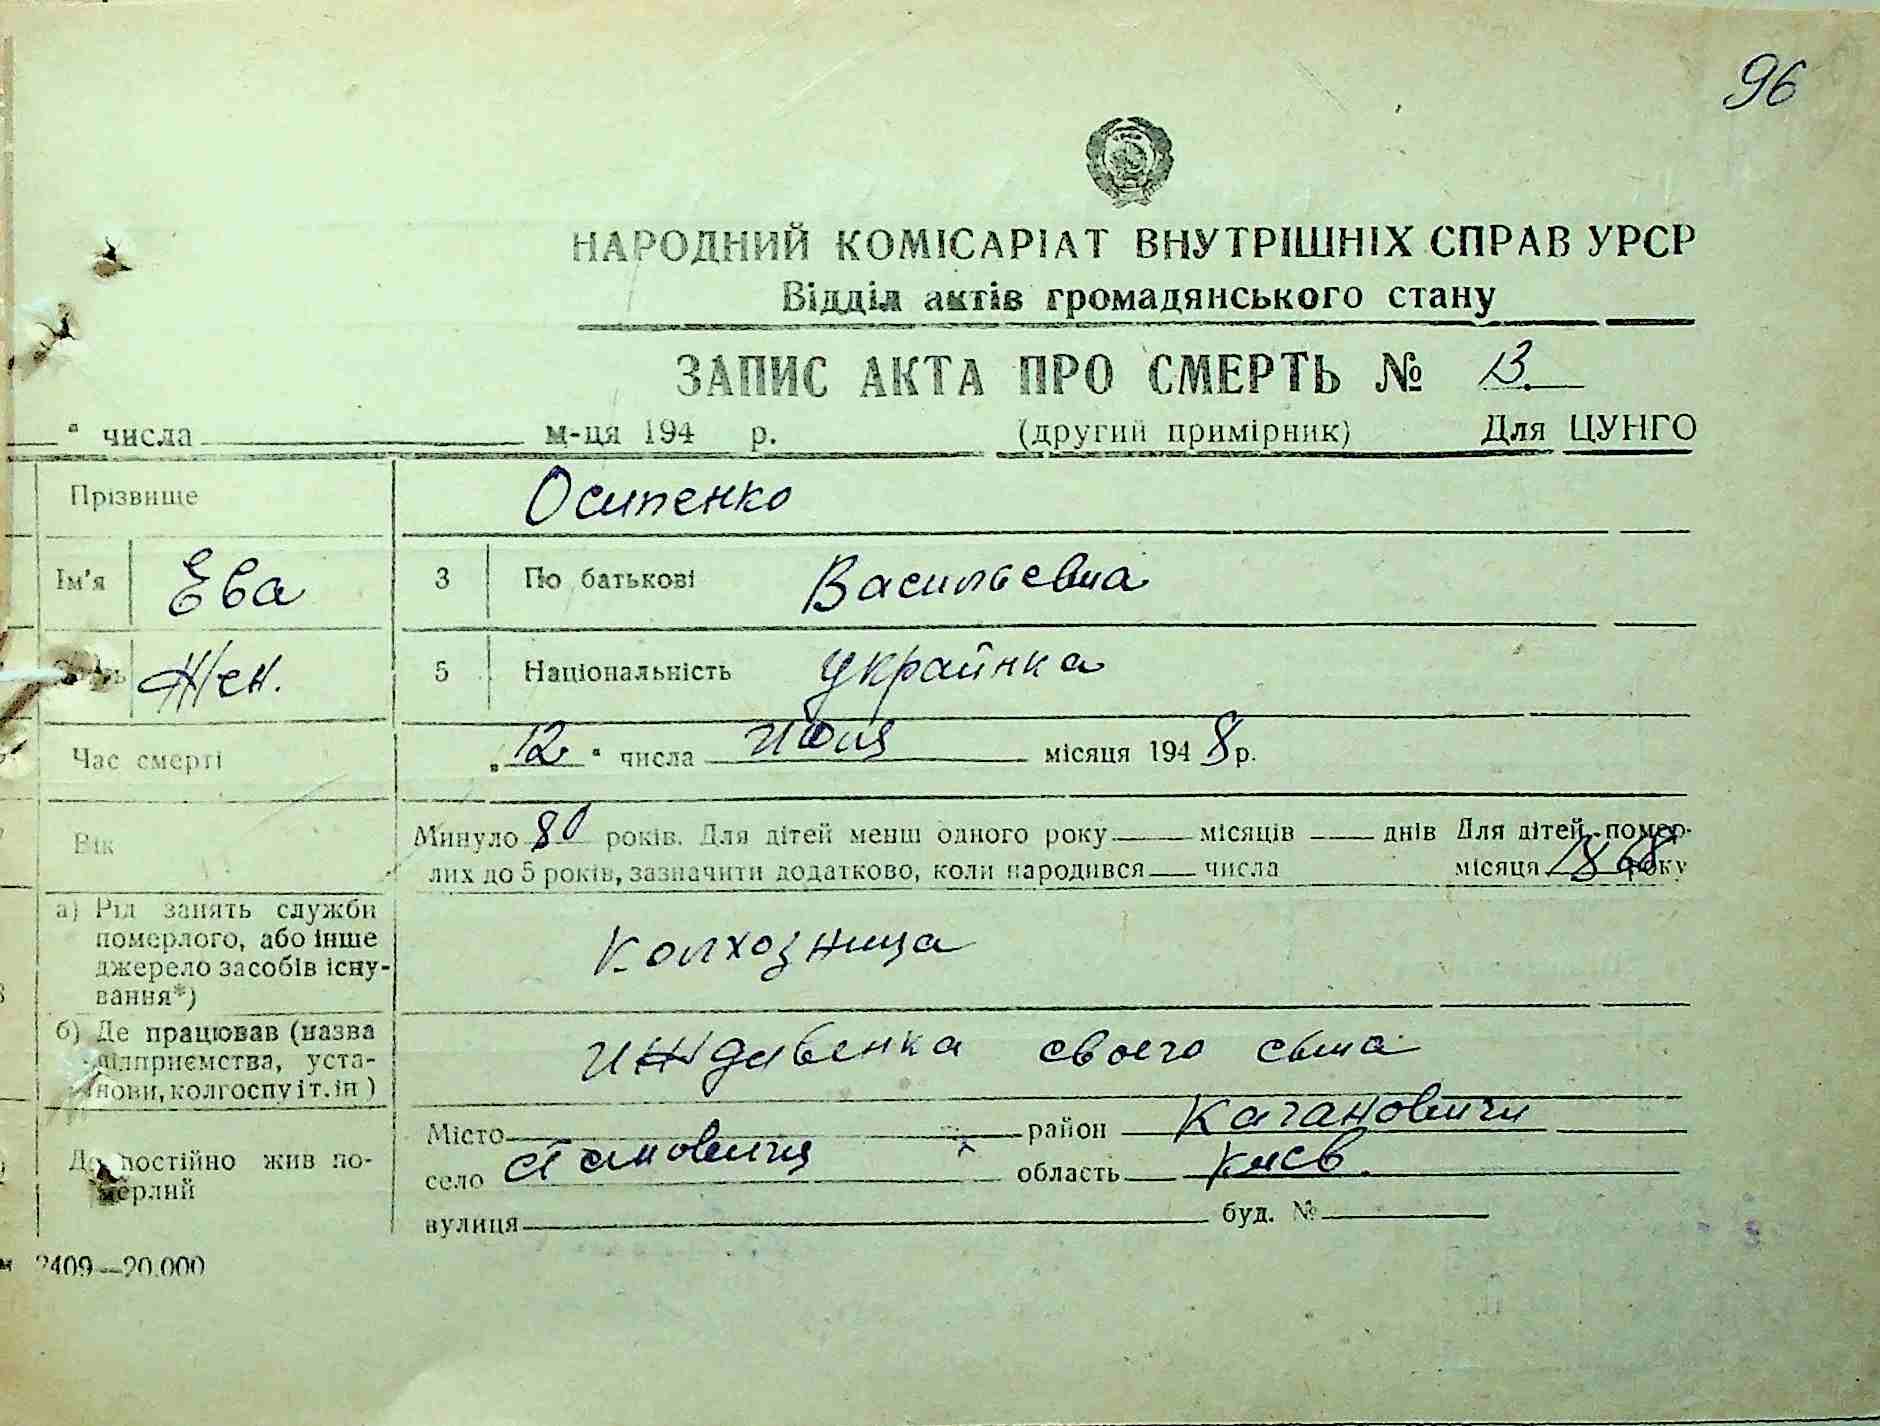 96
НАРОДНИЙ КОМІСАРІАТ ВНУТРІШНІХ СПРАВ УРСР
Відділ актів громадянського стану
ЗАПИС АКТА ПРО СМЕРТЬ № 13.
" числа м-ця 194 р. (другий примірник) Для ЦУНГО
Прізвище Осипенко
Ім'я Ева 3 По батькові Васильевна
Жен. 5 Національність украинка
Час смерті „12" числа июля місяця 1948 р.
Вік Минуло 80 років. Для дітей менш одного року місяців днів Для дітей, помер-
лих до 5 років, зазначити додатково, коли народився числа місяця 1868 року
а) Рід занять служби
померлого, або інше
джерело засобів існу-
вання*)
Колхозница
б) Де працював (назва
підприємства, уста-
нови, колгоспу і т. ін)
иждивенка своего сына
Де постійно жив по-
мерлий
Місто район Кагановичи
село область Киев.
вулиця буд. №
2409—20.000